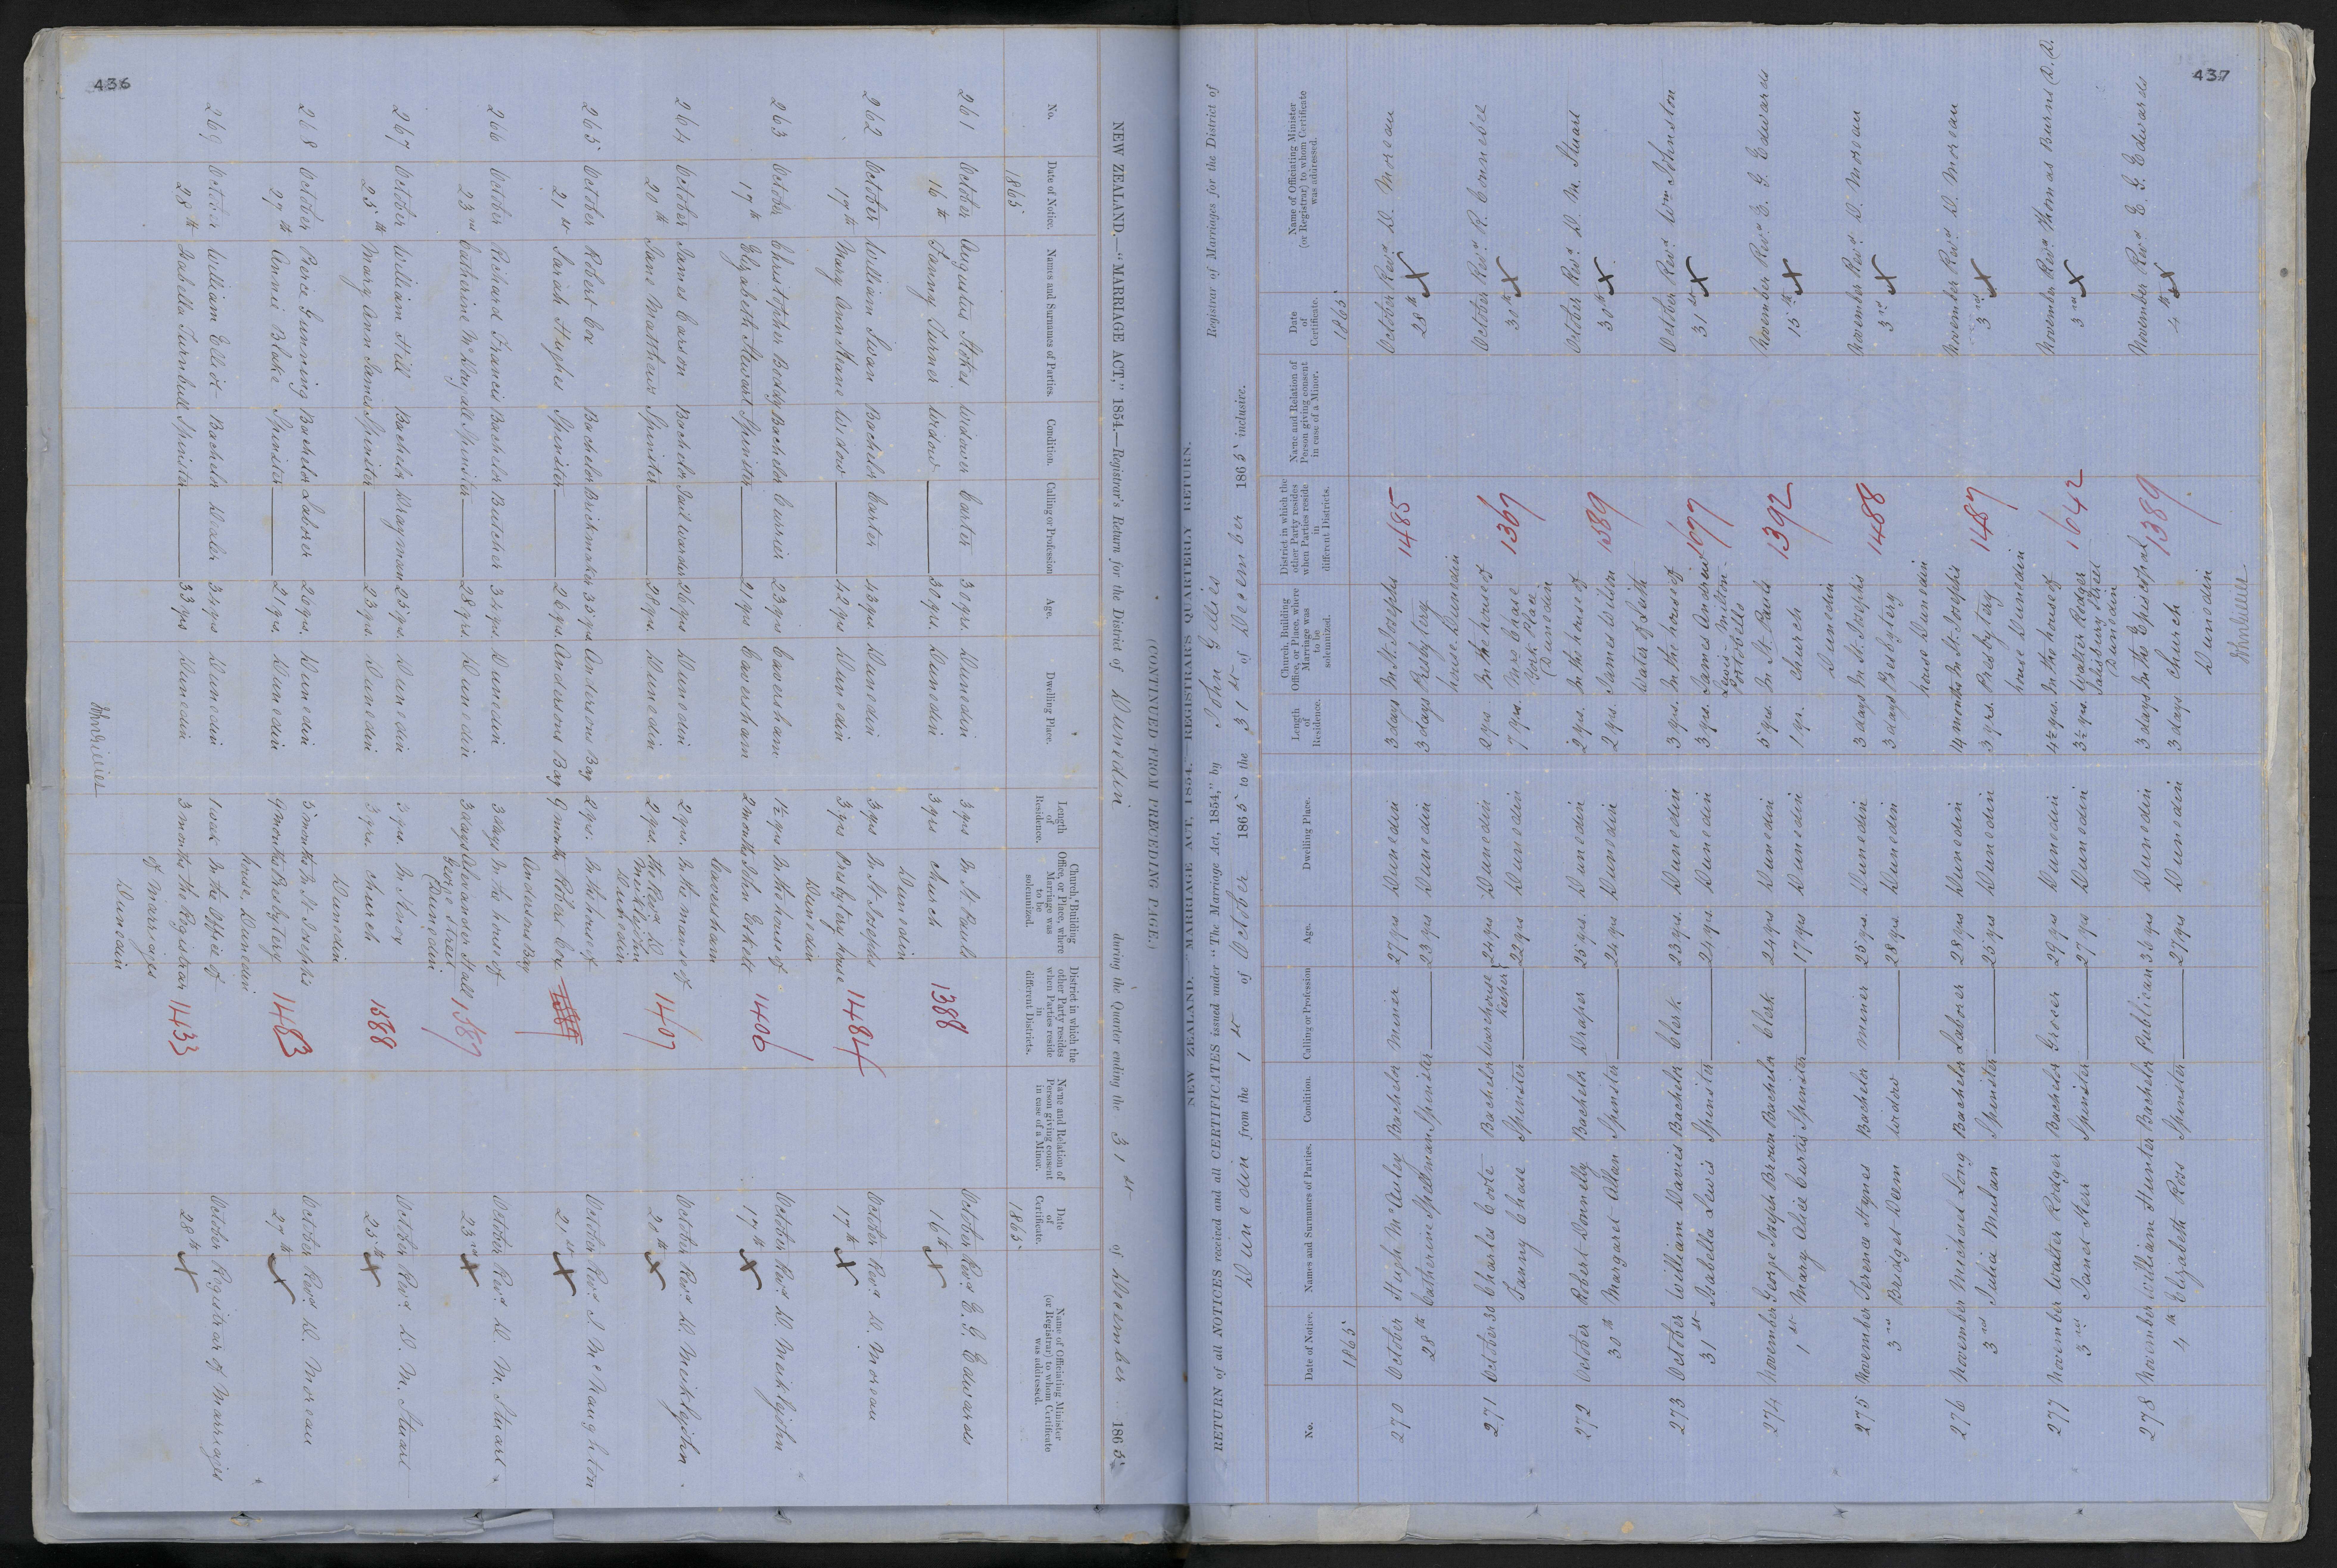 436
(CONTINUED FROM PRECEDING PAGE.)
NEW ZEALAND.—"MARRIAGE ACT," 1854.—Registrar's Return for the District of Dunedin during the Quarter ending the 31st of December 1865
No. Date of Notice. Names and Surnames of Parties. Condition. Calling or Profession Age. Dwelling Place. Length of Residence. Church, Building Office, or Place, where Marriage was to be solemnized. District in which the other Party resides when Parties reside in different Districts. Name and Relation of Person giving consent in case of a Minor. Date of Certificate. Name of Officiating Minister (or Registrar) to whom Certificate was addressed.
1865 1865
261 October Augustus Stokes Widower Carter 30 yrs. Dunedin 3 yrs In St Pauls 1388 October Revd. E. G. Edwards
16th Fanny Turner Widow 30 yrs. Dunedin 3 yrs church 16th
Dunedin
262 October William Swan Bachelor Carter 43 yrs. Dunedin 3 yrs In St Josephs 1484 October Revd. D. Moreau
17th Mary Ann Hane Widow 42 yrs Dunedin 3 yrs Presbytery house 17th
Dunedin
263 October Christopher Body Bachelor Currier 23 yrs Caversham 1½ yrs In the house of 1406 October Revd. D. Meiklejohn
17th Elizabeth Stewart Spinster 21 yrs Caversham 2 months John Eskett 17th
Caversham
264 October James Carson Bachelor Jail warder 26 yrs Dunedin 2 yrs. In the manse of 1407 October Revd. D. Meiklejohn
20th Jane Matthews Spinster 28 yrs. Dunedin 2 yrs. the Revd. D. Meiklejohn 20th
Dunedin
265 October Robert Cox Bachelor Brickmaker 35 yrs. Andersons Bay 2 yrs. In the house of October Revd. J. McNaughton
21st Sarah Hughes Spinster 26 yrs. Andersons Bay 9 months Robert Cox 21st
Andersons Bay
266 October Richard Francis Bachelor Butcher 34 yrs. Dunedin 3 days In the house of 1587 October Revd. D. M. Stuart
23rd Catherine Spinster 28 yrs. Dunedin 3 days Alexander Hall 23rd
George Street
(Dunedin
267 October William Hill Bachelor Drayman 25 yrs. Dunedin 3 yrs. In Knox 1588 October Revd. D. M. Stuart
25th Mary Ann James Spinster 23 yrs. Dunedin 3 yrs. church 25th
Dunedin
268 October Pierce Gunning Bachelor Laborer 26 yrs. Dunedin 5 months In St Josephs 1483 October Revd. D. Moreau
27th Annie Blake Spinster 21 yrs. Dunedin 9 months Presbytery 27th
house, Dunedin
269 October William Elliot Bachelor Dealer 34 yrs Dunedin 1 week In the Office of 1433 October Registrar of Marriages
28th Isabella Turnbull Spinster 33 yrs Dunedin 3 months the Registrar 28th
of marriages
Dunedin
John Gillies
437
NEW ZEALAND.—"MARRIAGE ACT, 1854."—REGISTRAR'S QUARTERLY RETURN.
RETURN of all NOTICES received and all CERTIFICATES issued under "The Marriage Act, 1854," by John Gillies Registrar of Marriages for the District of
Dunedin from the 1st of October 1865 to the 31st of December 1865 inclusive.
No. Date of Notice. Names and Surnames of Parties. Condition. Calling or Profession Age. Dwelling Place. Length of Residence. Church, Building Office, or Place, where Marriage was to be solemnized. District in which the other Party resides when Parties reside in different Districts. Name and Relation of Person giving consent in case of a Minor. Date of Certificate. Name of Officiating Minister (or Registrar) to whom Certificate was addressed.
1865 1865
270 October Hugh McAuley Bachelor Miner 27 yrs Dunedin 3 days In St. Josephs 1485 October Revd. D. Moreau
28th Catherine Spellman Spinster 23 yrs Dunedin 3 days Presbytery 28th
house, Dunedin
271 October 30 Charles Coote Bachelor Warehouse keeper 24 yrs Dunedin 2 yrs. In the house of 1367 October Revd. R. Connebee
Fanny Chase Spinster 22 yrs Dunedin 7 yrs. Mrs Chase 30th
York Place
(Dunedin
272 October Robert Donnelly Bachelor Draper 25 yrs. Dunedin 2 yrs. In the house of 1589 October Revd. D. M. Stuart
30th Margaret Allan Spinster 24 yrs Dunedin 2 yrs. James Wilson 30th
Water of Leith
273 October William Davies Bachelor Clerk 23 yrs. Dunedin 3 yrs. In the house of 1697 October Revd. Wm Johnston
31st Isabella Lewis Spinster 24 yrs. Dunedin 3 yrs. James Andrew 31st
Lewis - Milton -
Portobello
274 November George Joseph Brown Bachelor Clerk 24 yrs Dunedin 5 yrs. In St. Pauls 1392 November Revd. E. G. Edwards
1st Mary Alice Curtis Spinster 17 yrs Dunedin 1 yr. church 15th
Dunedin
275 November Terence Hynes Bachelor miner 25 yrs. Dunedin 3 days In St. Josephs 1488 November Revd. D. Moreau
3rd Bridget Deem widow 28 yrs. Dunedin 3 days Presbytery 3rd
house Dunedin
276 November Michael Long Bachelor Laborer 28 yrs Dunedin 14 months In St. Josephs 1487 November Revd. D. Moreau
3rd Julia Mulan Spinster 25 yrs Dunedin 3 yrs. Presbytery 3rd
house Dunedin
277 November Walter Rodger Bachelor Grocer 29 yrs Dunedin 4½ yrs. In the house of 1642 November Revd. Thomas Burns (D.D.
3rd Janet Kerr Spinster 27 yrs Dunedin 3½ yrs. Walter Rodger 3rd
Street
(Dunedin
278 November William Hunter Bachelor Publican 36 yrs Dunedin 3 days In the Episcopal 1389 November Revd. E. G. Edwards
4th Elizabeth Ross Spinster 27 yrs Dunedin 3 days church 4th
Dunedin
John Gillies